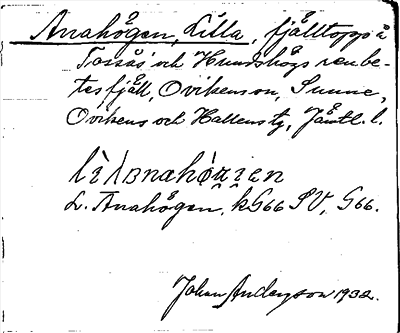 Anahögen, Lilla, fjälltopp å
Tossås och Hundshögs renbe-
tesfjäll, Ovikens sn, Sunne,
Ovikens och Hallens tg, Jämtl. l.
L. Anahögen, kG66 SV, G66.
Johan Anderzson 1932.